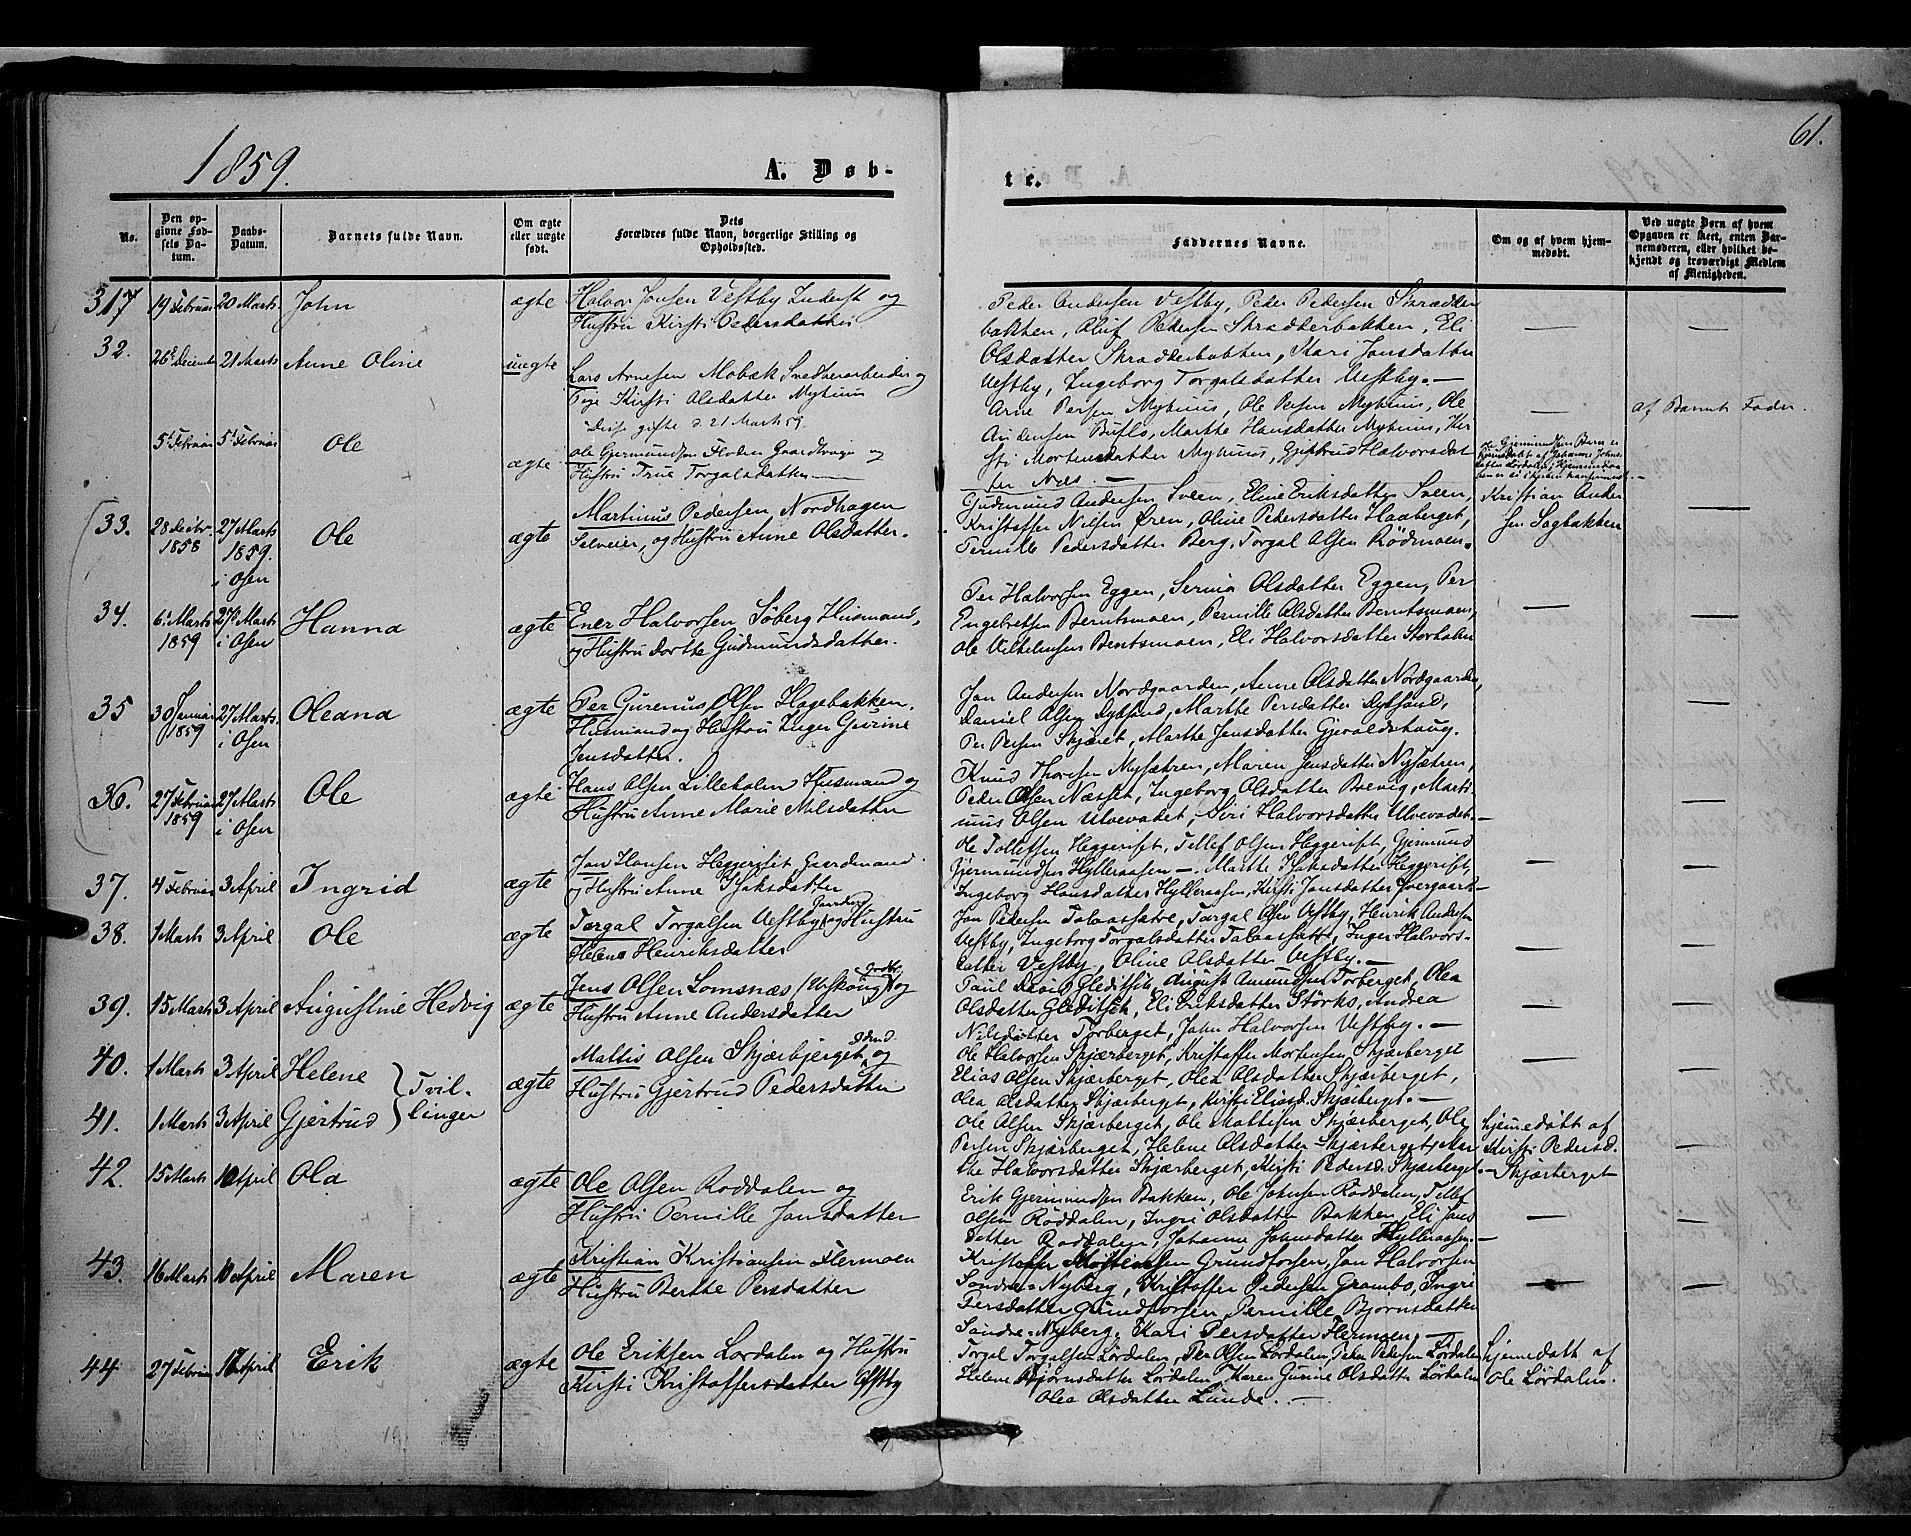 1859.
A. Døb-
te.
61.
No.
Den op-
givne Fød-
sels Da-
tum.
Daabs-
Datum.
Barnets fulde Navn.
Om ægte
eller uægte
født.
Dets
Forældres fulde Navn, borgerlige Stilling og
Opholdssted.
Faddernes Navne.
Om og af hvem hjem-
medøbt.
Ved uægte Børn af hvem
Opgaven er skeet, enten Bar-
nemoderen, eller hvilket be-
kjendt og troværdigt Medlem
af Menigheden.
317 19 Februar 20 Marts John ægte
Halvor Jonsen Vestby Inderst og
Hustru Kirsti Pedersdatter
Peder Andersen Vestby, Peder Pedersen Skrædder
bakken, Oluf Pedersen Skrædderbakken, Eli
Olsdatter Skrædderbakken, Kari Jonsdatter
Vestby, Ingeborg Torgalsdatter Vestby. —
32. 26 December 21 Marts Anne Oline uægte
Lars Arnesen Mobæk og
Pige Kirsti Olsdatter Myhuus
Disse gifte d. 21 Marts 59
Arne Persen Myhuus, Ole Persen Myhuus, Ole
Andersen Buflo, Marthe Hansdatter Myhuus, Kir
sti Mortensdatter Myhuus, Gjertrud Halvorsdat
ter Næs. —
af Barnets Fader.
5t Februar 5t Februar Ole ægte
Ole Gjermundsen Floden Gaardbruger og
Hustru True Torgalsdatter
Ole Gjermundsens Barn er
hjemdøbt af Johanne Johns-
datter Lørdalen; Hjemmedaa-
ben er i Kirken konfirmeret.
33. 28 Decbr. 1858 27 Marts 1859. i Osen Ole ægte
Martinus Pedersen Nordhagen
Selveier, og Hustru Anne Olsdatter.
Gudmund Andersen Sveen, Eline Eriksdatter Sveen,
Kristoffer Nilsen Øren, Oline Pedersdatter Haaberget,
Pernille Pedersdatter Berg, Torgal Olsen Rødmoen.
Kristian Ander
sen Sagbakken
34. 6 Marts 1859 27 Marts i Osen Hanna ægte
Ener Halvorsen Søberg Husmand,
og Hustru Dorthe Gudmundsdatter.
Per Halvorsen Eggen, Serina Olsdatter Eggen, Per
Engebretsen Berntsmoen, Pernille Olsdatter Berntsmoen,
Ole Vilhelmsen Berntsmoen, Eli Halvorsdatter Storholm
35 30 Januar 1859 27 Marts i Osen Oleana ægte
Per Gurenus Olsen Hagebakken.
Husmand og Hustru Inger Gurine
Jensdatter.
Jon Andersen Nordgaarden, Anne Olsdatter Nordgaarden,
Daniel Olsen Sydsund, Marthe Persdatter Sydsund,
Per Persen Skjæret, Marthe Jensdatter Gjevaldshaug.
36. 27 Februar 1859 27 Marts i Osen Ole ægte
Hans Olsen Lilleholm Husmand og
Hustru Anne Marie Nilsdatter
Knud Thoresen Nysætren, Maren Jensdatter Nysætren,
Peder Olsen Næsset, Ingeborg Olsdatter Brevig, Marti-
nus Olsen Ulvevadet, Siri Halvorsdatter Ulvevadet. —
37. 4 Februar 3 April Ingrid ægte
Jon Hansen Heggerist Gaardmand
og Hustru Anne Isaksdatter
Ole Tollefsen Heggerist, Tellef Olsen Heggerist, Gjermund
Gjermundsen Hylleraasen —. Marthe Isaksdatter Heggerist,
Ingeborg Hansdatter Hylleraasen, Kirsti Jonsdatter
38. 1 Marts 3 April Ole ægte
Torgal Torgalsen Vestby Gaardbr. og Hustru
Helene Henriksdatter
Jon Pedersen Tolaasætre, Torgal Olsen Vestby, Henrik Andersen
Vestby, Ingeborg Torgalsdatter, Inger Halvors-
datter Vestby, Oline Olsdatter Vestby. —
39. 15 Marts 3 April Augustine Hedvig ægte
Jens Olsen Lomsnæs og
Hustru Anne Andersdatter
Paul David Gleditsch, August Amundsen Torberget, Olea
Olsdatter Gleditsch, Eli Eriksdatter Størks, Andrea
Nilsdatter Torberget, John Halvorsen Vestby. —
40. 1 Marts 3 April Helene } Tvil-
41. 1 Marts 3 April Gjertrud } linger ægte
Mattis Olsen Skjærbjerget og
Hustru Gjertrud Pedersdatter
Ole Halvorsen Skjærberget, Kristoffer Mortensen Skjærberget
Elias Olsen Skjærberget, Olea Olsdatter Skjærberget,
Olea Olsdatter Skjærberget, Kirsti Eliasd. Skjærberget. —
Ole Olsen Skjærberget, Ole Mattisen Skjærberget, Ole
Persen Skjærberget, Helene Olsdatter Skjærberget, Mar
the Halvorsdatter Skjærberget, Kirsti Pedersd. Skjærberget. —
hjemmedøbt af
Kirsti Pedersd.
Skjærberget
42. 15 Marts 10 April Ola ægte
Ole Olsen Røddalen og
Hustru Pernille Jonsdatter
Erik Gjermundsen Bakken, Ole Johnsen Røddalen, Tellef
Olsen Røddalen, Ingri Olsdatter Bakken, Eli Jons
datter Røddalen, Johanne Johnsdatter Hylleraasen. —
43. 16 Marts 10 April Maren ægte
Kristian Kristiansen Flermoen
Hustru Berthe Persdatter
Kristoffer Mortensen Grundforsen, Jon Halvorsen
Søndre-Nyberg, Kristoffer Pedersen Grambo, Ingri
Persdatter Grundforsen, Pernille Bjørnsdatter
Søndre-Nyberg, Kari Persdatter Flermoen. —
44 27 Februar 17 April Erik ægte
Ole Eriksen Lørdalen og Hustru
Kirsti Kristoffersdatter Vestby
Torgal Torgalsen Lørdalen, Per Olsen Lørdalen, Peder Pedersen Lørdalen
Helene Bjørnsdatter Lørdalen, Maren Gurine Olsdatter Lørdalen
Olea Olsdatter Lunde. —
hjemmedøbt af
Ole Lørdalen.